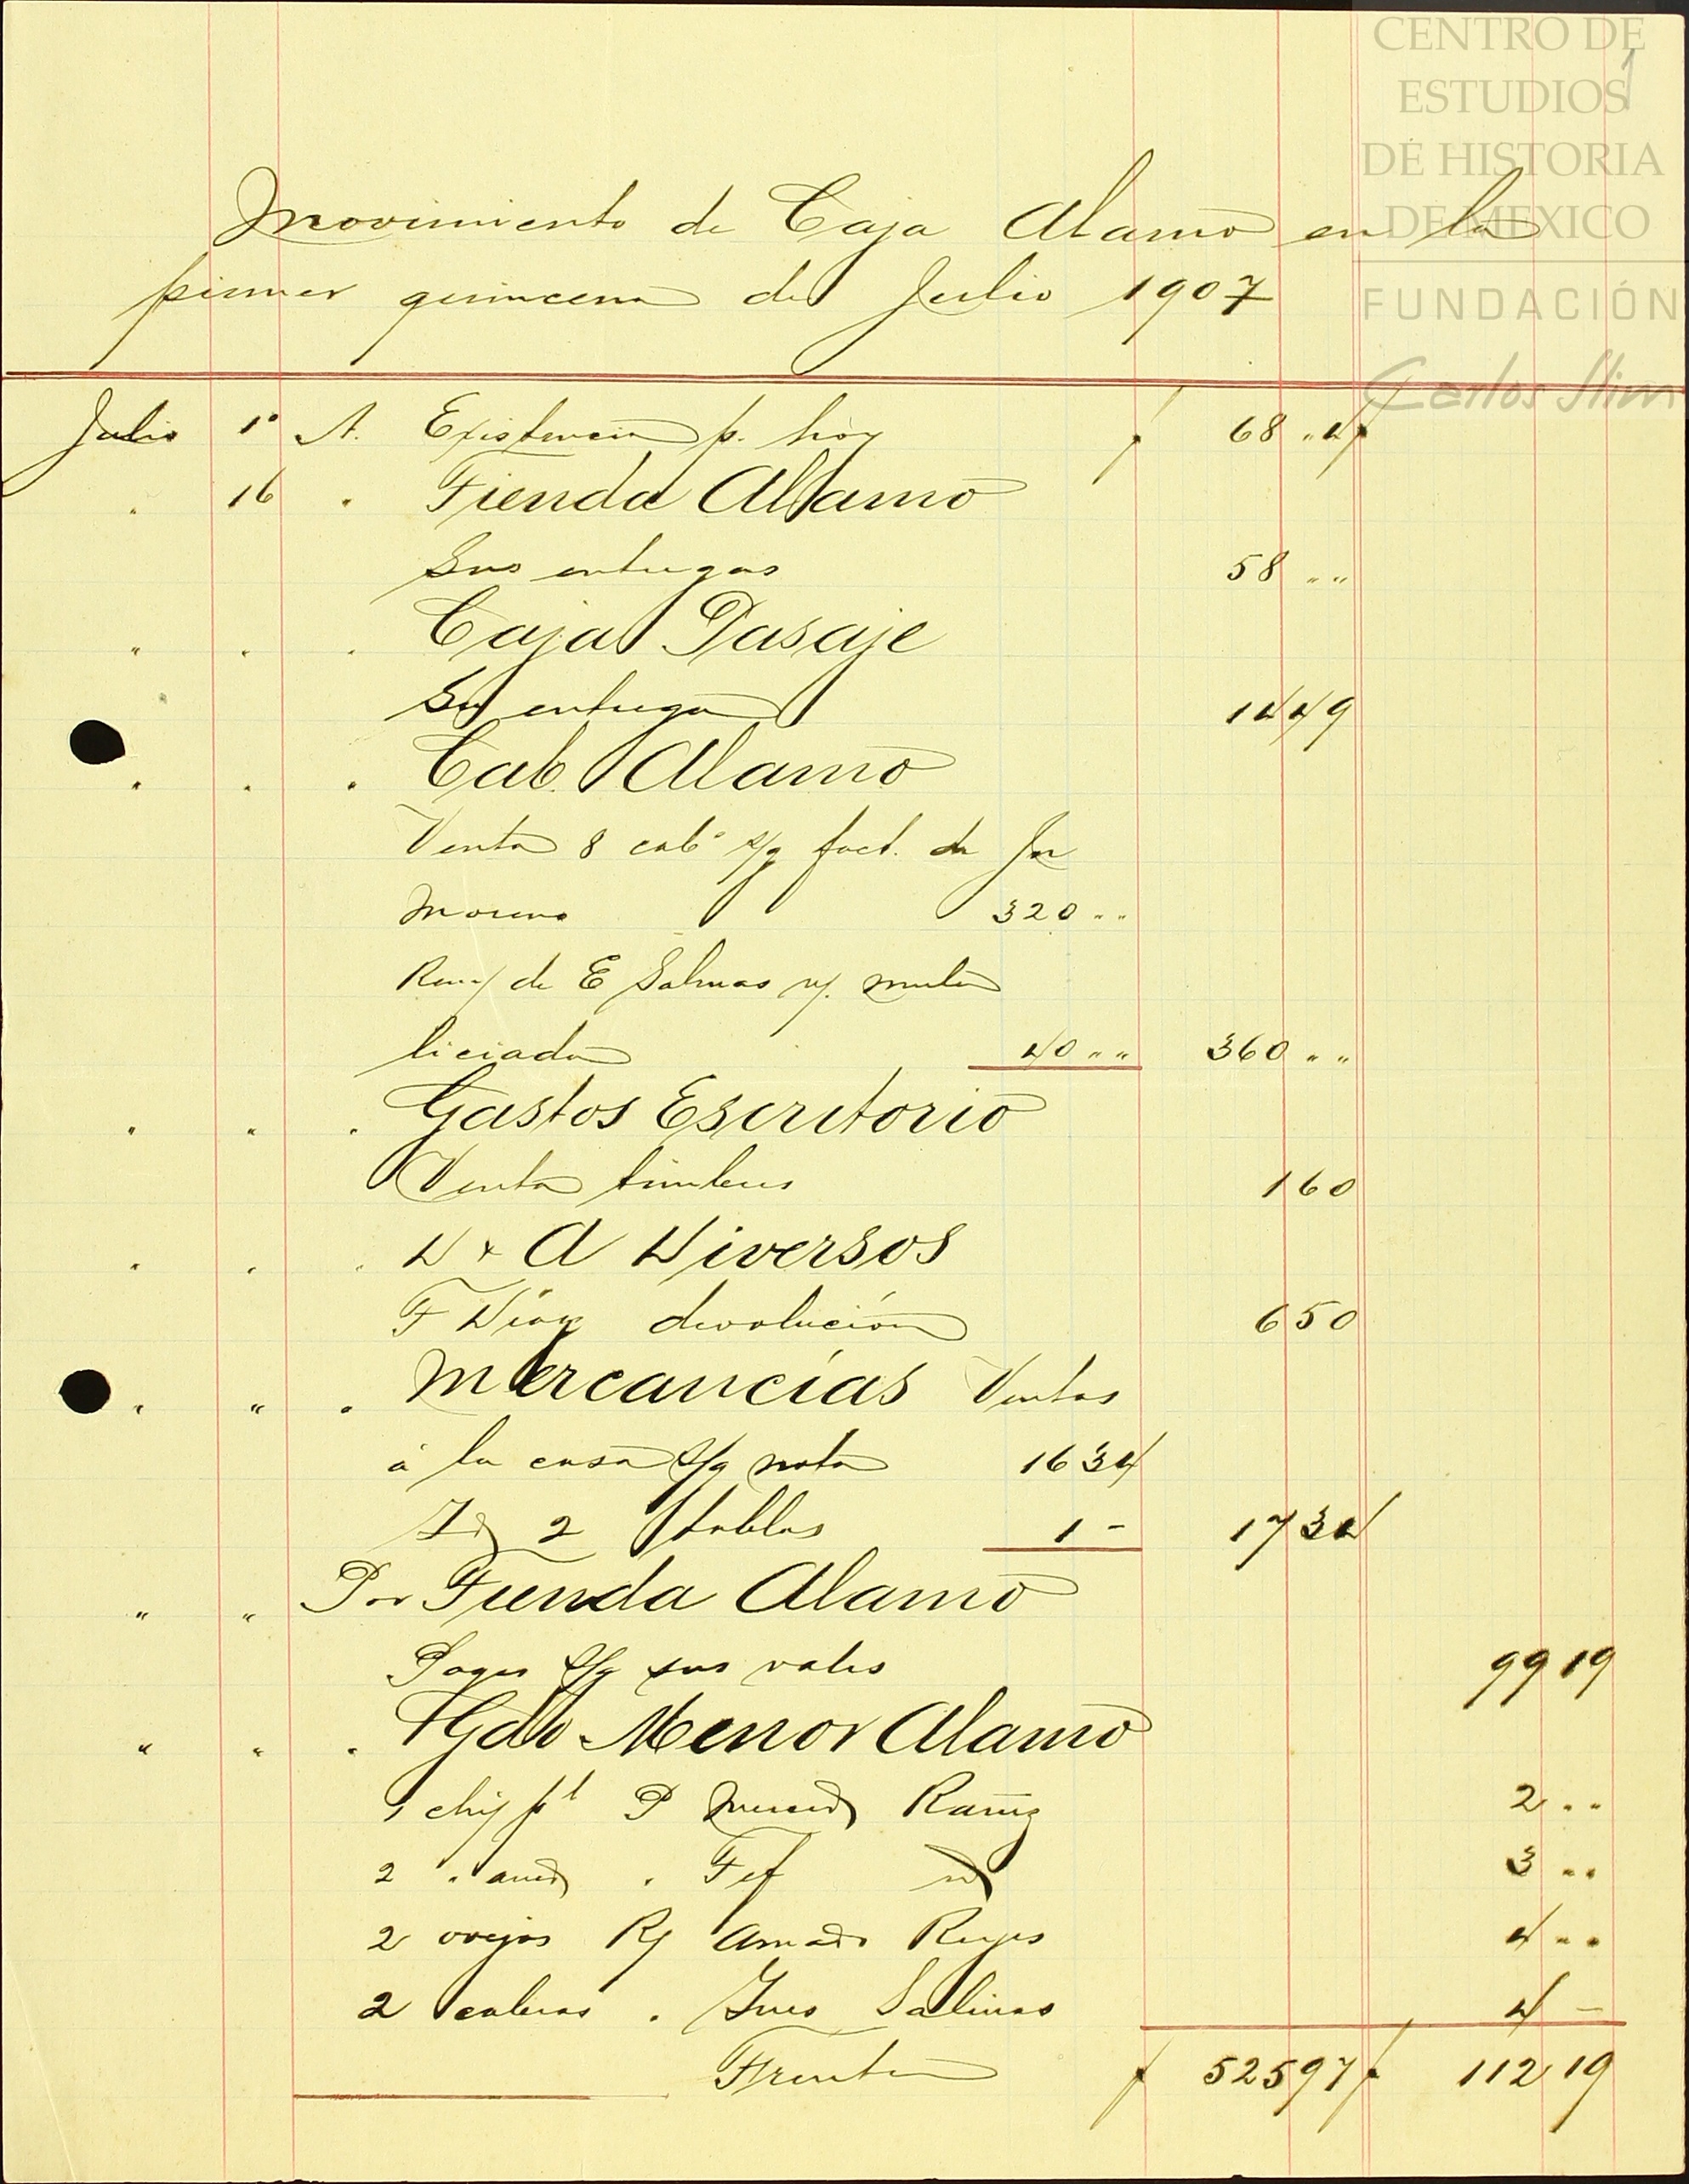 CENTRO DE
ESTUDIOS
DE HISTORIA
DE MEXICO
FUNDACIÓN
Carlos Slim
1
Movimiento de Caja Alamo en la
primer quincena de Julio 1907
Julio 1º A. Existencia p. hoy $ 68 "4
" 16 " Tienda Alamo
Sus entregas 58 " "
" " " Caja Pasaje
Su entrega 14 49
" " " Cab. Alamo
Venta 8 cabs s/g fact. de Jn
Moreno 320 " "
de E Salinas mula
liciada 40 " " 360 " "
" " " Gastos Escritorio
Venta timbres 1 60
" " " D + A Diversos
F Díaz devolución 6 50
" " " Mercancías Ventas
á la casa s/g nota 16 34
Id 2 tablas 1 - 17 34
" " Por Tienda Alamo
Pagos s/g sus vales 99 19
" " " Gdo Menor Alamo
1 chiv pt P Ramz 2 " "
2 " " Tef id 3 " "
2 ovejas Rf Amado Reyes 4 " "
2 cabras " Ines Salinas 4 -
Frente $ 525 97 $ 112 19